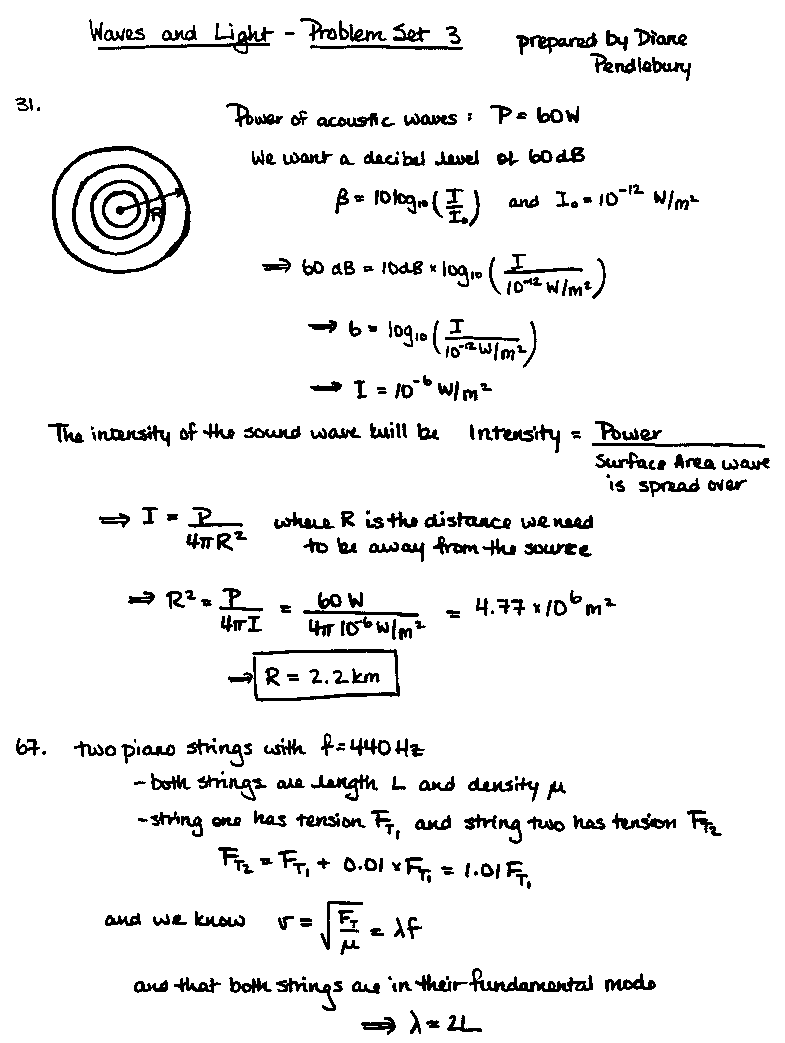 Waves and Light - Problem Set 3
prepared by Diane
Pendlebury
31.
Power of acoustic waves: P = 60W
We want a decibel level of 60dB
β = 10log₁₀(I/I₀) and I₀ = 10⁻¹² W/m²
R
⟹ 60 dB = 10dB × log₁₀(I/10⁻¹² W/m²)
⟹ 6 = log₁₀(I/10⁻¹² W/m²)
⟹ I = 10⁻⁶ W/m²
The intensity of the sound wave will be Intensity = Power
Surface Area wave
is spread over
⟹ I = P/4πR² where R is the distance we need
to be away from the source
⟹ R² = P/4πI = 60 W/4π 10⁻⁶ W/m² = 4.77 × 10⁶ m²
⟹ R = 2.2 km
67. two piano strings with f = 440 Hz
- both strings are length L and density μ
- string one has tension F_T₁ and string two has tension F_T₂
F_T₂ = F_T₁ + 0.01 × F_T₁ = 1.01 F_T₁
and we know v = √(F_T/μ) = λf
and that both strings are in their fundamental mode
⟹ λ = 2L